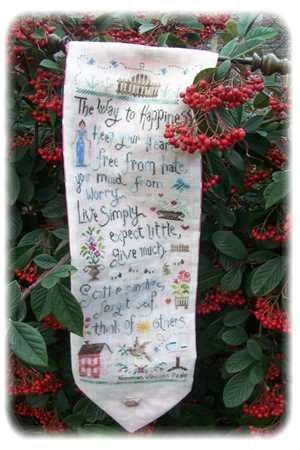 The Way to Happiness
keep your heart
free from hate,
you mind from
worry.
Live Simply
expect little,
give much.
Scatter sunshine,
forget self,
think of others.